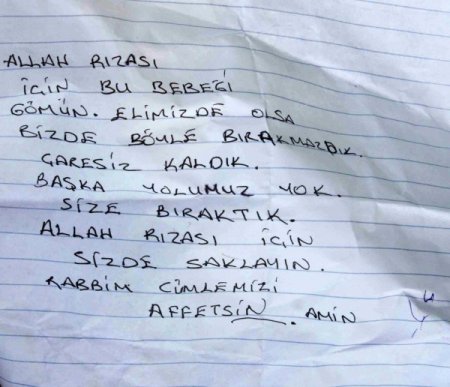 ALLAH RIZASI
İÇİN BU BEBEĞİ
GÖMÜN. ELİMİZDE OLSA
BİZDE BÖYLE BIRAKMAZDIK.
ÇARESİZ KALDIK.
BAŞKA YOLUMUZ YOK.
SİZE BIRAKTIK.
ALLAH RIZASI İÇİN
SİZDE SAKLAYIN.
RABBİM CİMLEMİZİ
AFFETSİN. AMİN